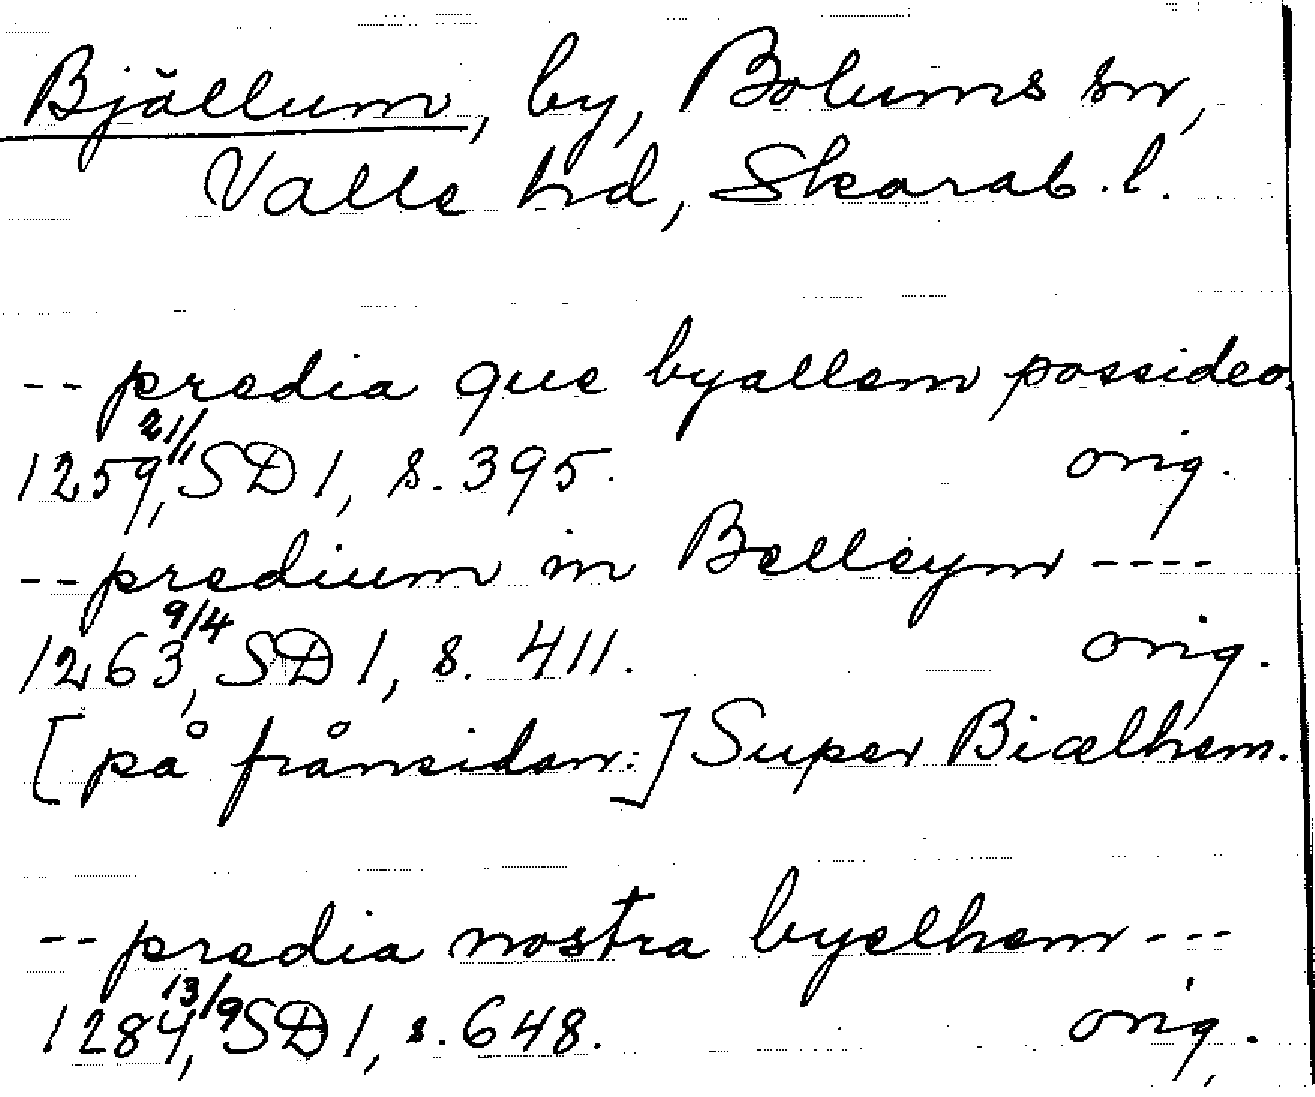 Bjällum, by, Bolums sn,
Valle hd, Skarab. l.
-- predia que byallem possideo.
1259 21/1, SD 1, s. 395. orig.
-- predium in Belleym ----
1263 9/4, SD 1, s. 411. orig.
[på frånsidan:] Super Biælhem.
-- predia nostra byelhem ---
1284 13/9, SD 1, s. 648. orig.